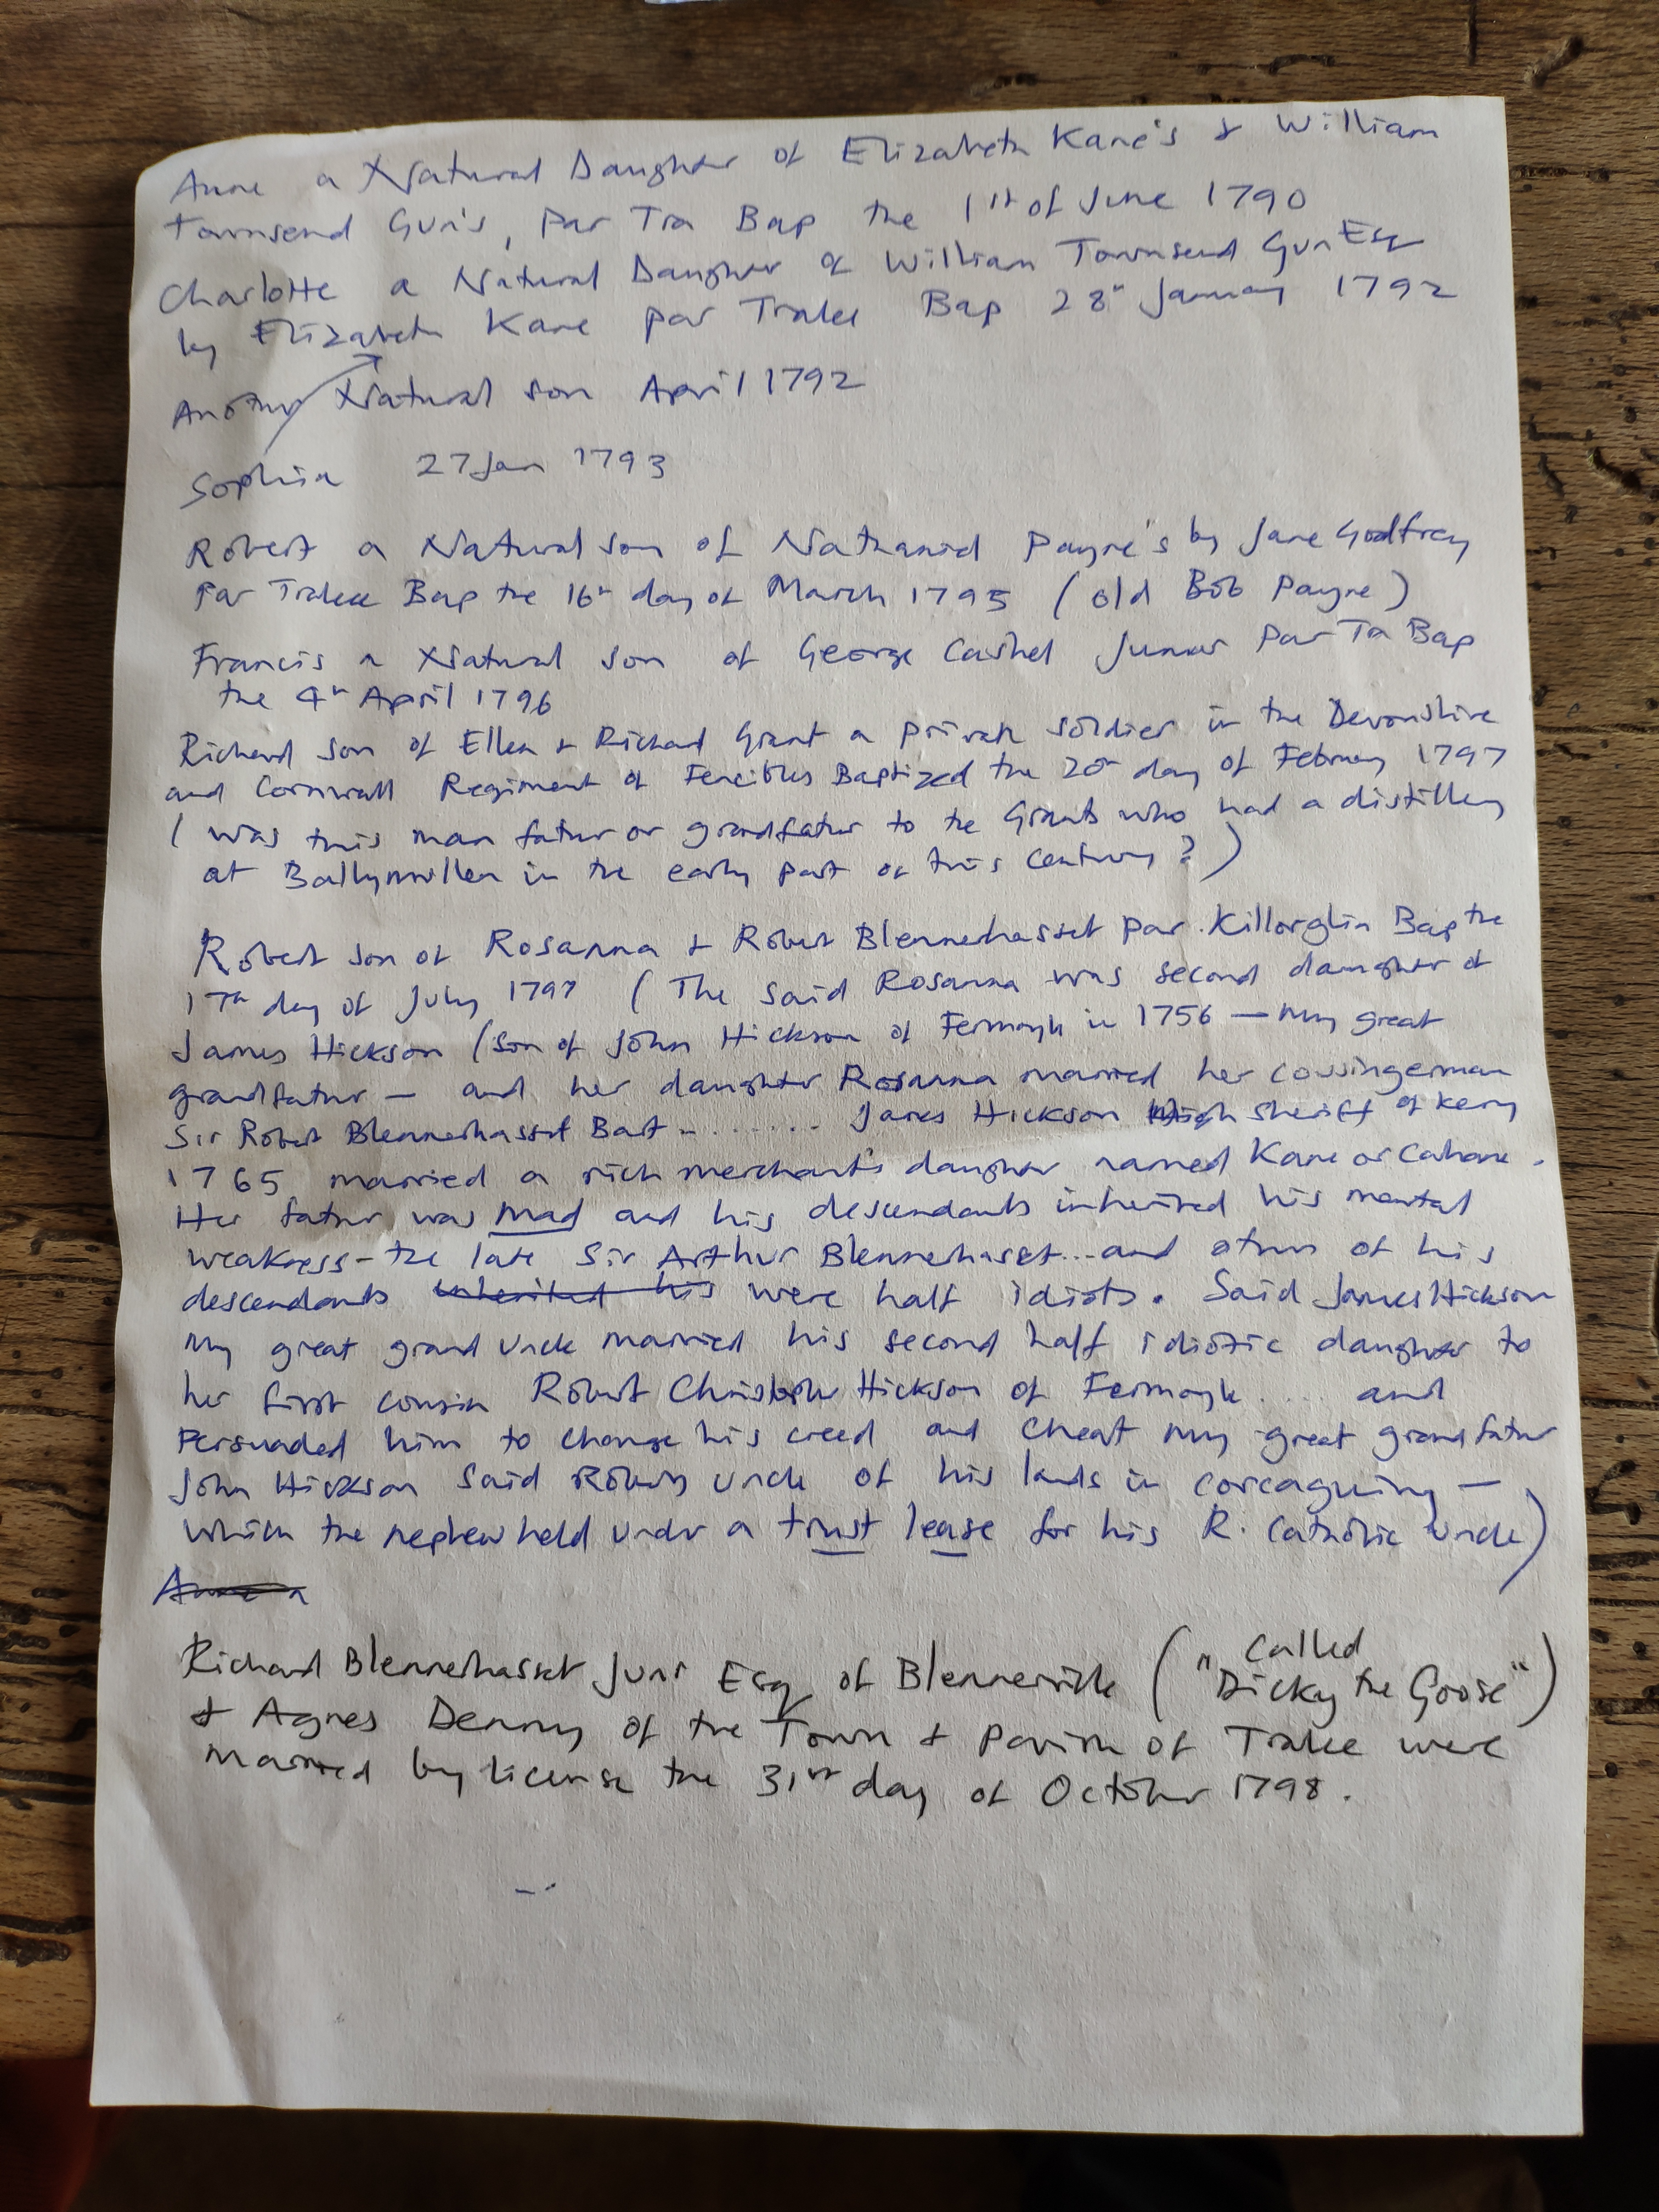 Anne a Natural Daughter of Elizabeth Kane's & William
Townsend Gun's, Par Tra Bap the 1st of June 1790
Charlotte a Natural Daughter of William Townsend Gun Esq
by Elizabeth Kane par Tralee Bap 28th January 1792
Another Natural son April 1792
Sophia 27 Jan 1793
Robert a Natural son of Nathaniel Payne's by Jane Godfrey
Par Tralee Bap the 16th day of March 1795 (old Bob Payne)
Francis a Natural son of George Cashel Junior Par Tra Bap
the 4th April 1796
Richard son of Ellen & Richard Grant a private soldier in the Devonshire
and Cornwall Regiment of Fencibles Baptized the 20th day of February 1797
(was this man father or grandfather to the Grants who had a distillery
at Ballymullen in the early part of this Century?)
Robert son of Rosanna & Robert Blennerhasset par. Killorglin Bap the
17th day of July 1797 (The said Rosanna was second daughter of
James Hickson (son of John Hickson of Fermoyle in 1756 — My great
grandfather — and her daughter Rosanna married her cousingerman
Sir Robert Blennerhasset Bart ........ James Hickson High Sheriff of Kerry
1765 married a rich merchant's daughter named Kane or Cahane.
Her father was mad and his descendants inherited his mental
weakness - the late Sir Arthur Blennerhasset... and others of his
descendants inherited his were half idiots. Said James Hickson
My great grand Uncle married his second half idiotic daughter to
her first cousin Robert Christopher Hickson of Fermoyle .... and
Persuaded him to change his creed and cheat my great grandfather
John Hickson said Roberts uncle of his lands in corcaguiny —
which the nephew held under a trust lease for his R. Catholic Uncle)
Richard Blennerhasset Junr Esq of Blennerville (called
"Dicky the Goose")
& Agnes Denny of the Town & Parish of Tralee were
married by license the 31st day of October 1798.